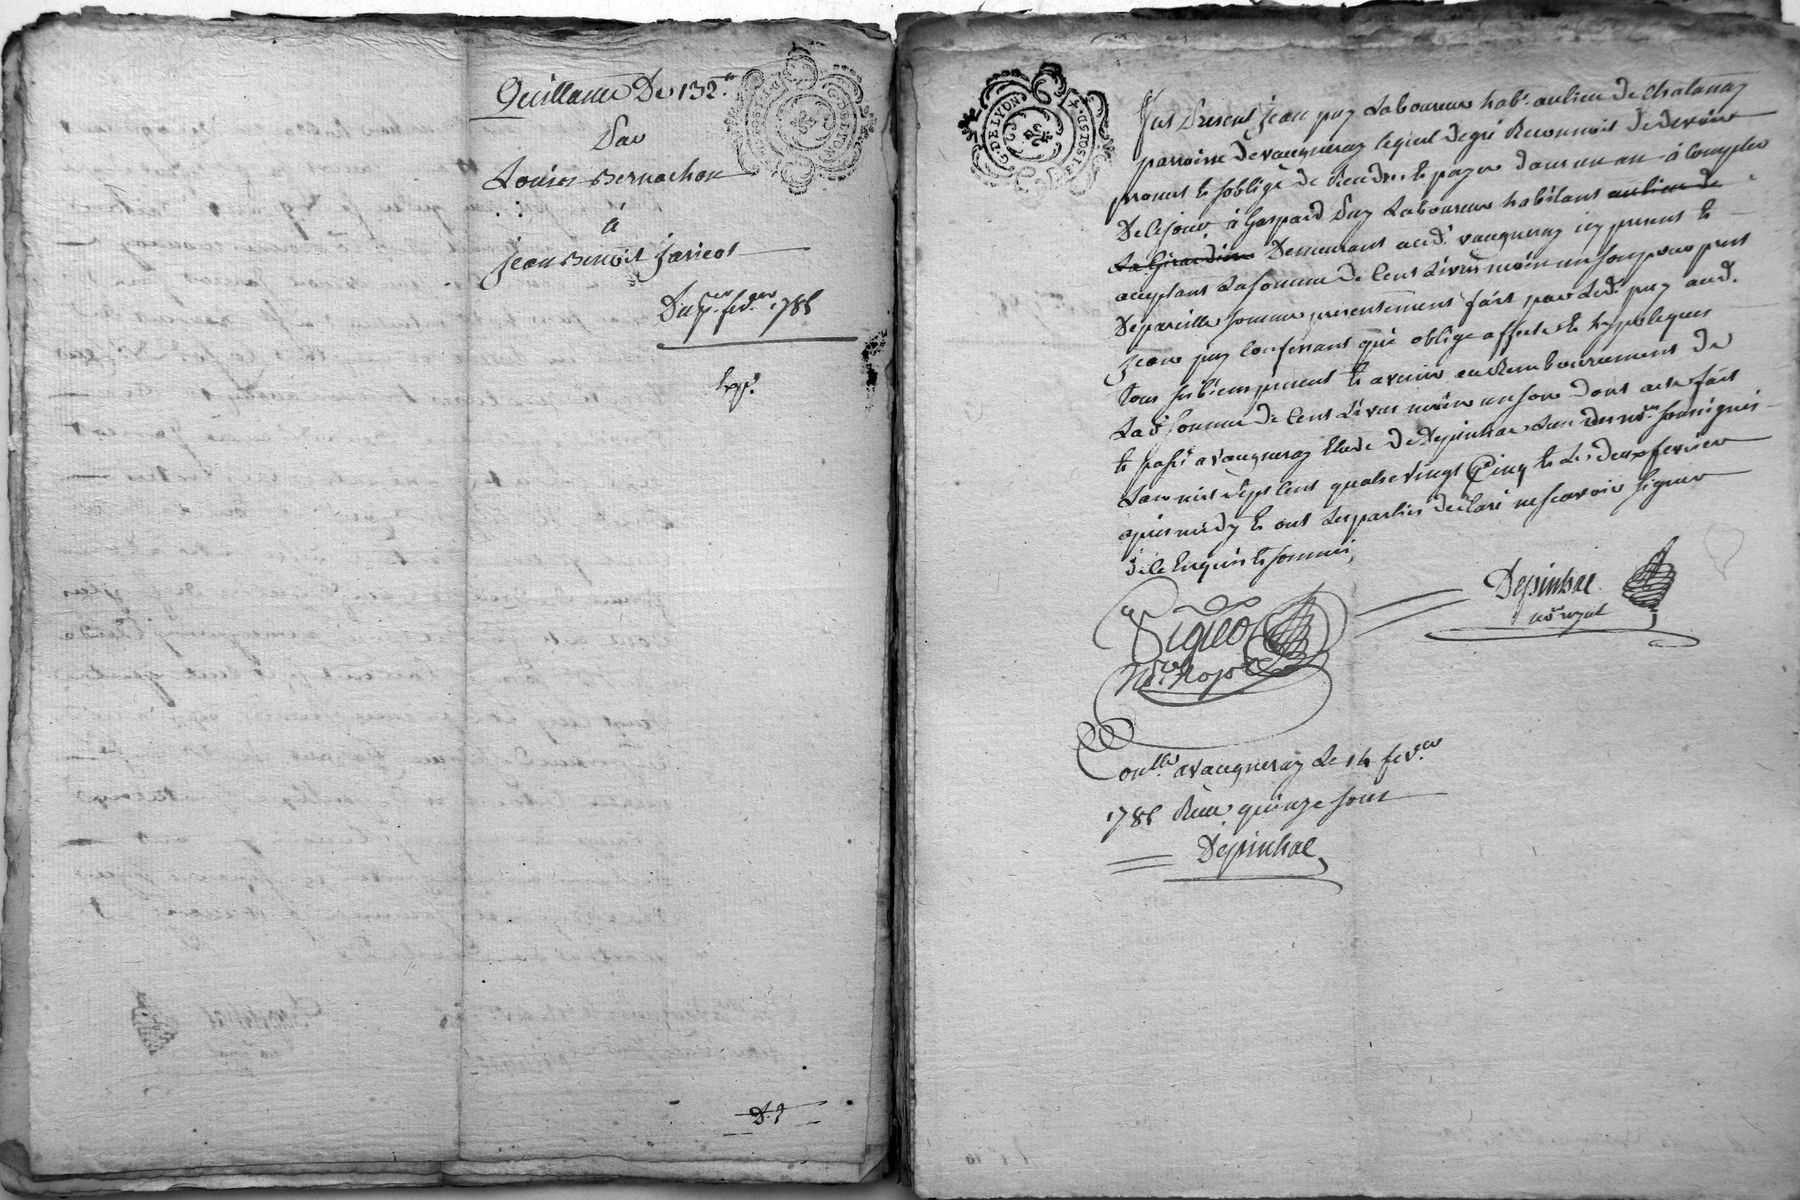 Quittance De 132.ᵗᵗ
Par
Louis Bernachon
à
jean Benoit jaricot
Du 7.er fév.er 1785
exp.é
G. DE LYON
Fut Présent jean puy Laboureur hab.t au lieu de Chalanay
parroisse de vaugneray lequel de gré Reconnoit de devoir
promet et s'oblige de Rendre et payer dans un an à Compter
De Ce jour, à Gaspard Puy Laboureur habitant au lieu de
La Girardière Demeurant aud.t vaugneray icy present et
acceptant La somme de Cent Livres moin un sou pour prest
De pareille somme presentement fait par Led.t puy aud.t
jean puy Confessant qui oblige affecte et hypoteques
Tous ses biens present et avenir au Remboursement de
Lad.e somme de Cent Livres moin un sou dont acte fait
et passé a vaugneray Etude de Depinhac L'un des no.res soussignés
L'an mil sept Cent quatre vingt Cinq et Le deux fevrier
après midy et ont Les parties déclaré ne scavoir signer
de Ce Enquis et sommés,
Depinhac
no.re royal
No.re Royal
Con.llé a vaugneray Le 14 fev.er
1785 Reçu quinze sous
Depinhac